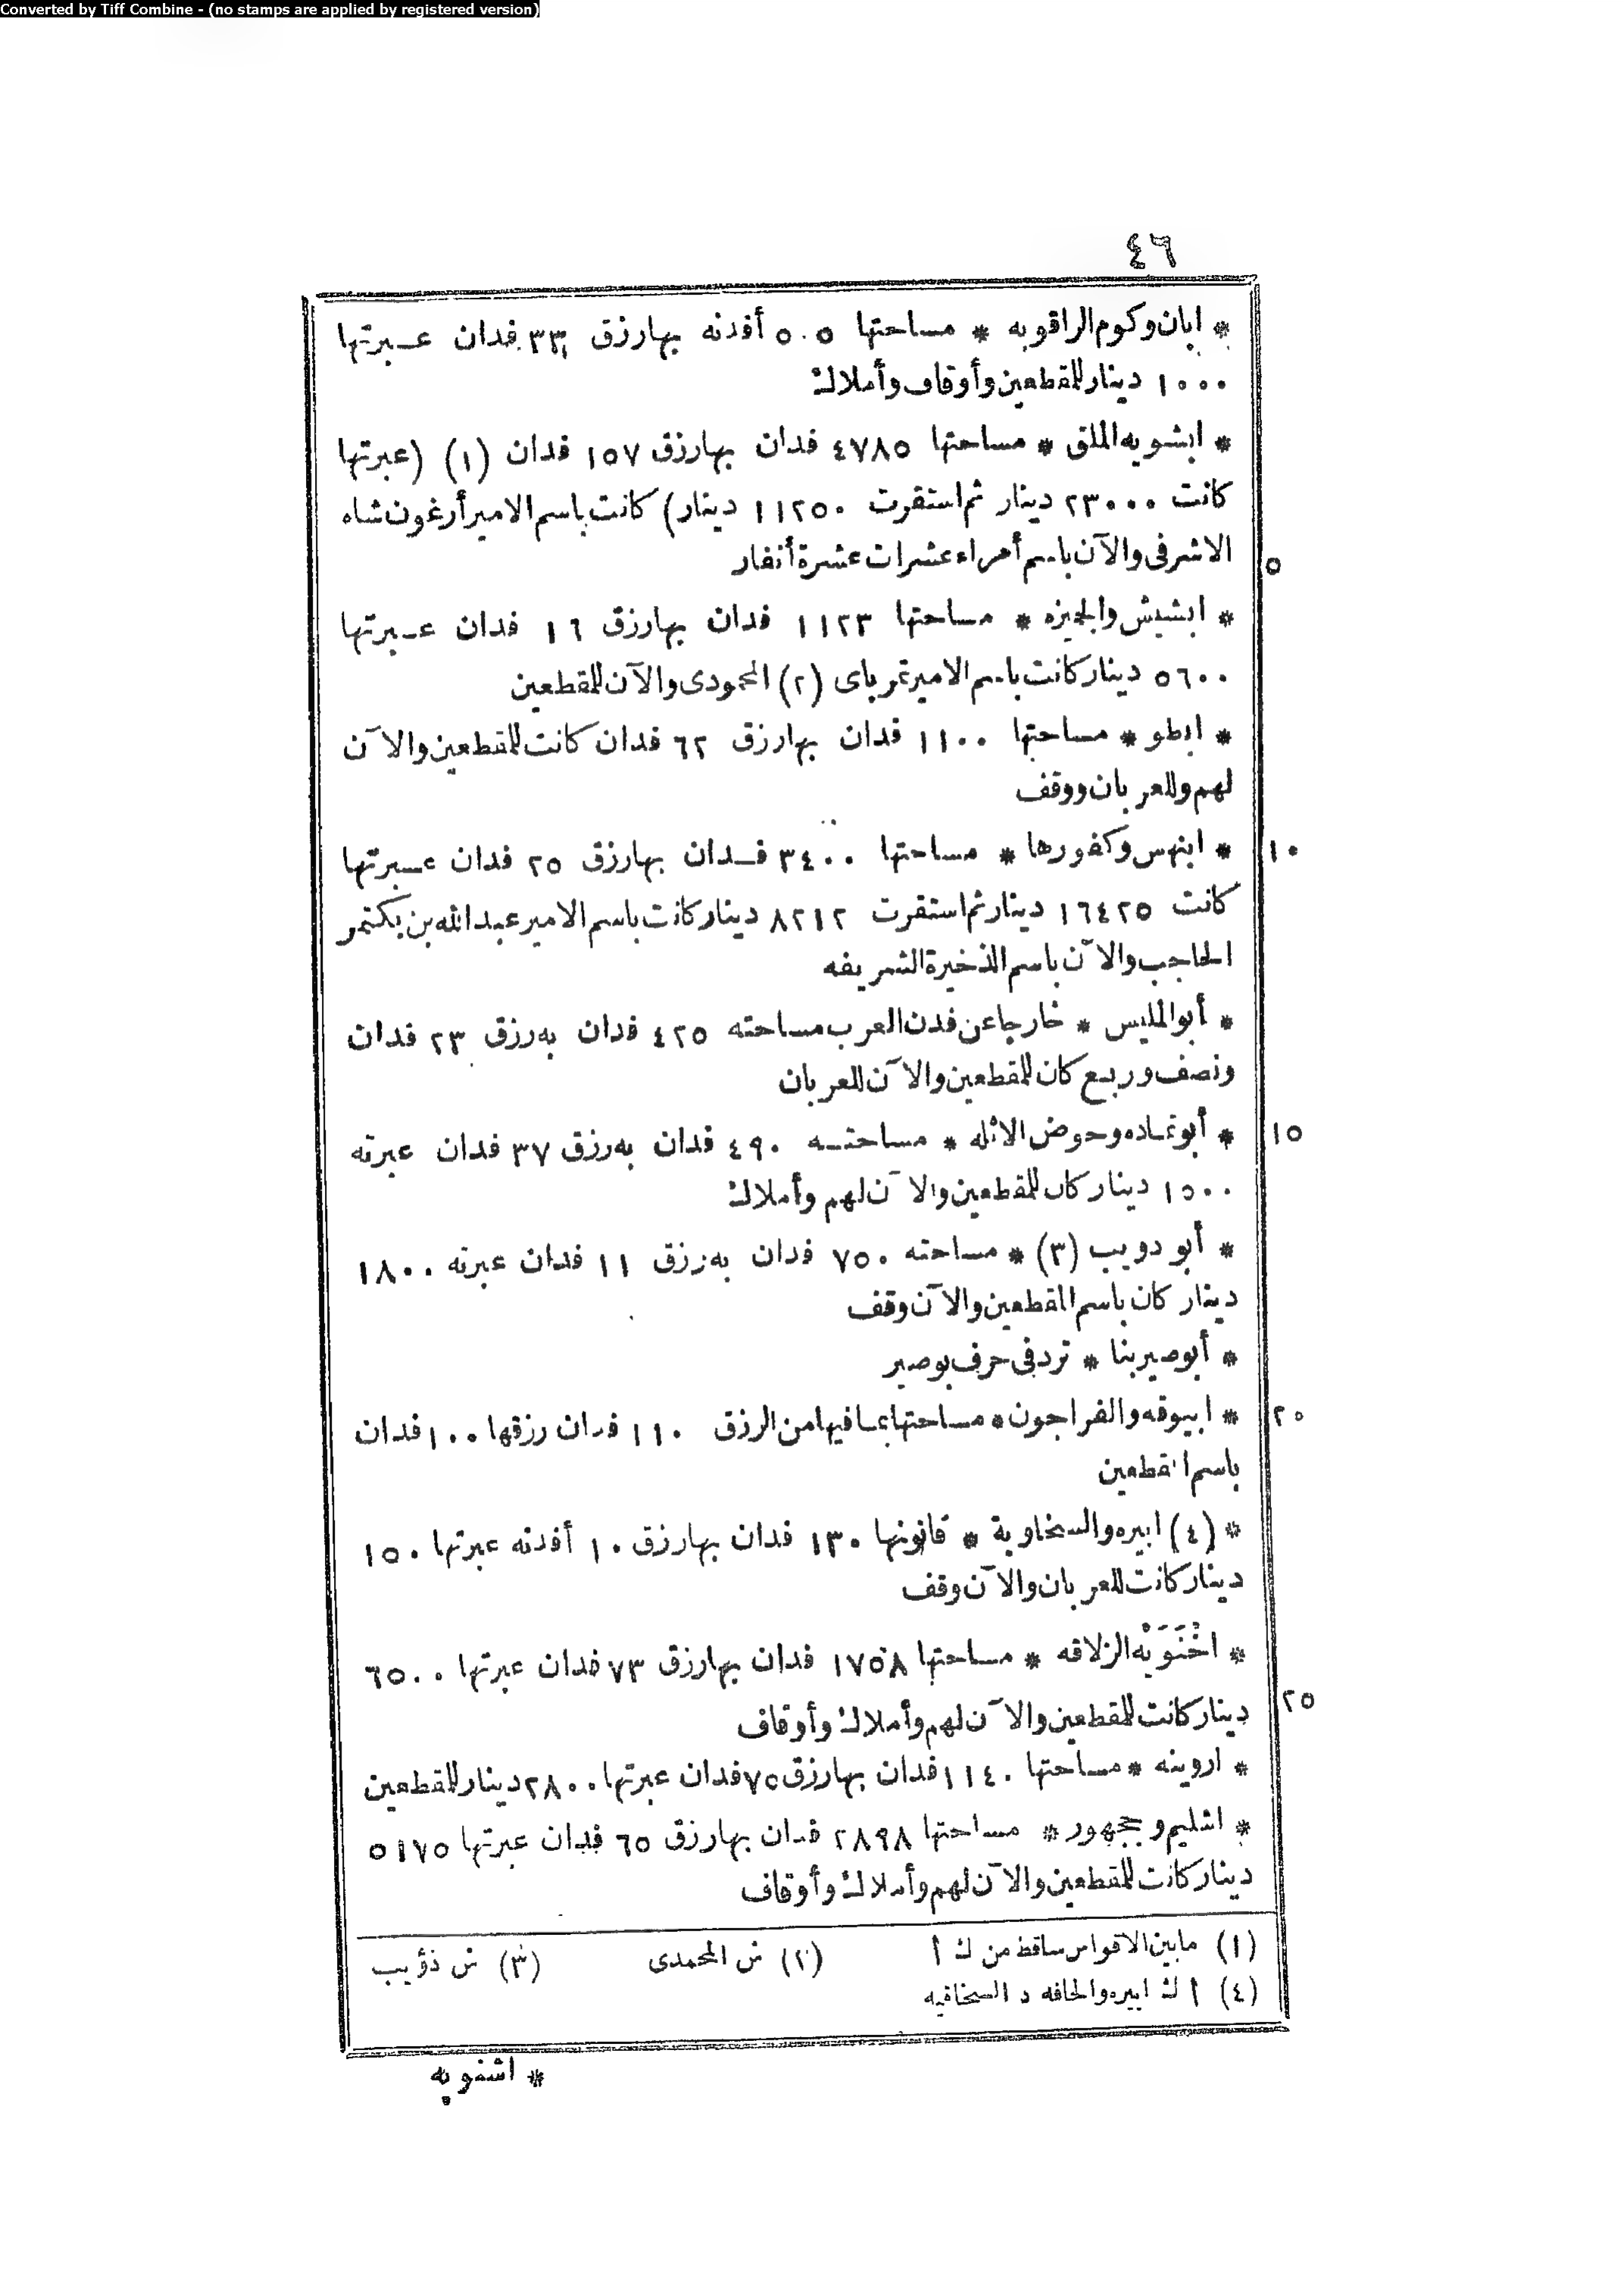 Converted by Tiff Combine - (no stamps are applied by registered version)
٤٦
* ابان وكوم الراقوبه * مساحتها ٥٠٥ أفدنه بهارزق ٣٣ فدان عبرتها
١٠٠٠ دينار للمقطعين وأوقاف وأملاك
* ابشويه الملق * مساحتها ٤٧٨٥ فدان بهارزق ١٥٧ فدان (١) (عبرتها
كانت ٢٣٠٠٠ دينار ثم استقرت ١١٢٥٠ دينار) كانت باسم الامير أرغون شاه
الاشرفى والآن باسم أمراء عشرات عشرة أنفار
٥
* ابشيش والجيزه * مساحتها ١١٢٣ فدان بهارزق ١٦ فدان عبرتها
٥٦٠٠ دينار كانت باسم الامير تمرباى (٢) المحمودى والآن للمقطعين
* ابطو * مساحتها ١١٠٠ فدان بهارزق ٦٢ فدان كانت للمقطعين والآن
لهم وللعربان ووقف
* ابنهس وكفورها * مساحتها ٣٤٠٠ فدان بهارزق ٢٥ فدان عبرتها
١٠
كانت ١٦٤٢٥ دينار ثم استقرت ٨٢١٢ دينار كانت باسم الامير عبد الله بن بكتمر
الحاجب والآن باسم الذخيرة الشريفه
* أبو المليس * خارجا عن فدن العرب مساحته ٤٢٥ فدان به رزق ٢٣ فدان
ونصف وربع كان للمقطعين والآن للعربان
* أبو تماده وحوض الاثله * مساحته ٤٩٠ فدان به رزق ٣٧ فدان عبرته
١٥
١٥٠٠ دينار كان للمقطعين والآن لهم وأملاك
* أبو دويب (٣) * مساحته ٧٥٠ فدان به رزق ١١ فدان عبرته ١٨٠٠
دينار كان باسم المقطعين والآن وقف
* أبو صير بنا * ترد فى حرف بوصير
* ابيوقه والفراجون * مساحتها بما فيها من الرزق ١١٠ فدان رزقها ١٠٠ فدان
٢٠
باسم المقطعين
* (٤) ابيره والسخاوية * قانونها ١٣٠ فدان بهارزق ١٠ أفدنه عبرتها ١٥٠
دينار كانت للعربان والآن وقف
* اخْنَوَيْه الزلاقه * مساحتها ١٧٥٨ فدان بهارزق ٧٣ فدان عبرتها ٦٥٠٠
دينار كانت للمقطعين والآن لهم وأملاك وأوقاف
٢٥
* اروينه * مساحتها ١١٤٠ فدان بهارزق ٧٥ فدان عبرتها ٢٨٠٠ دينار للمقطعين
* اشليم وججهور * مساحتها ٢٨٩٨ فدان بهارزق ٦٥ فدان عبرتها ٥١٧٥
دينار كانت للمقطعين والآن لهم وأملاك وأوقاف
(١) مابين الاقواس ساقط من ك أ (٢) ش المحمدى (٣) ش ذؤيب
(٤) أ ك ابيره والحافه د السخافيه
* اشنويه